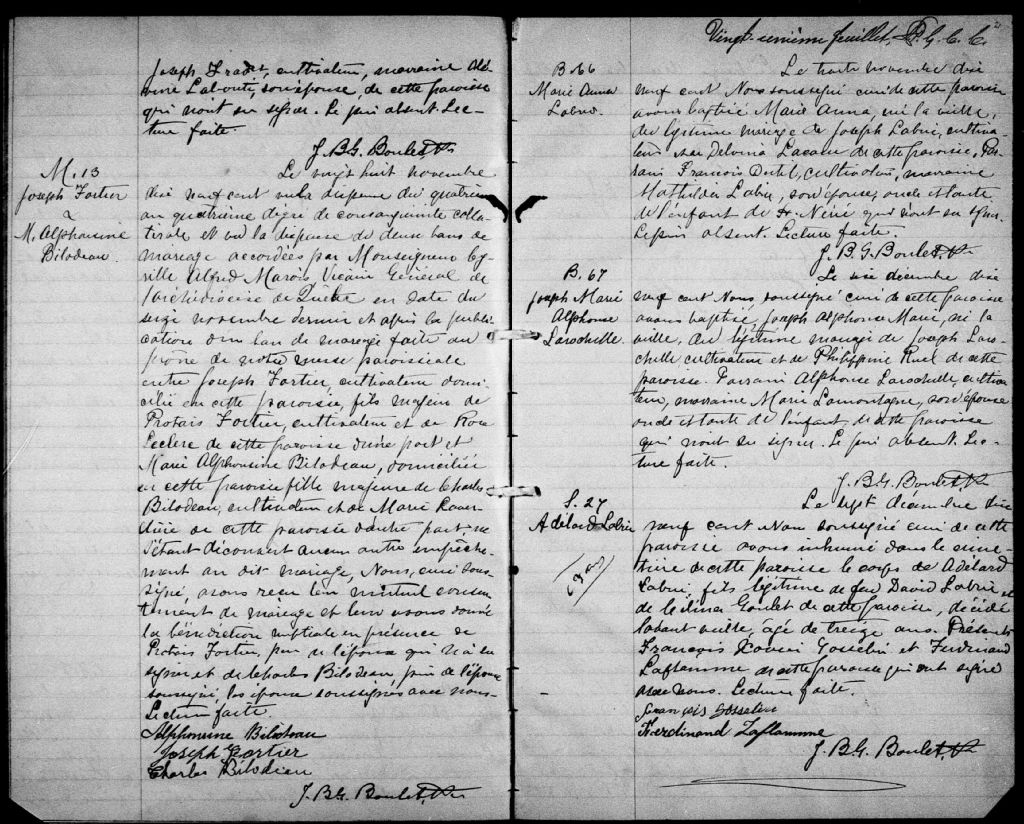 Joseph Fradet, cultivateur, marraine
Labonté, son épouse, de cette paroisse
qui n'ont su signer. Le père absent. Lec-
ture faite.
J. B. G. Boulet, Ptr
M. 13
Joseph Fortier
&
M. Alphonsine
Bilodeau.
Le vingt huit novembre
dix neuf cent vu la dispense du quatrième
au quatrième degré de consanguinité colla-
térale et vu la dispense de deux bans de
mariage accordées par Monseigneur Cy-
rille Alfred Marois Vicaire Général de
l'archidiocèse de Québec en date du
seize novembre dernier et après la publi-
cation d'un ban de mariage faite au
prône de notre messe paroissiale
entre Joseph Fortier, cultivateur domi-
cilié en cette paroisse, fils majeur de
Protais Fortier, cultivateur et de Rose
Leclerc de cette paroisse d'une part et
Marie Alphonsine Bilodeau, domiciliée
en cette paroisse fille majeure de Charles
Bilodeau, cultivateur et de Marie
de cette paroisse d'autre part, ne
s'étant découvert aucun autre empêche-
ment au dit mariage, Nous, curé sous-
signé, avons reçu leur mutuel consen-
tement de mariage et leur avons donné
la bénédiction nuptiale en présence de
Protais Fortier, père de l'époux qui n'a su
signer et de Charles Bilodeau, père de l'épouse
soussigné les époux soussignés avec nous.
Lecture faite.
Alphonsine Bilodeau
Joseph Fortier
Charles Bilodeau
J. B. G. Boulet, Ptr
Vingt-unième feuillet, G. C. C.
B. 66
Marie Anna
Labrie.
Le trente novembre dix
neuf cent Nous soussigné curé de cette paroisse
avons baptisé Marie Anna, née la veille,
du légitime mariage de Joseph Labrie, cultiva-
teur et de Delvina Lacasse de cette paroisse. Par-
rain François cultivateur, marraine
Mathilda Labrie, son épouse, oncle et tante
de l'enfant de St. Nérée qui n'ont su signer.
Le père absent. Lecture faite.
J. B. G. Boulet, Ptr
B. 67
Joseph Marie
Alphonse
Larochelle.
Le six décembre dix
neuf cent Nous, soussigné curé de cette paroisse
avons baptisé, Joseph Alphonse Marie, né la
veille, du légitime mariage de Joseph Laro-
chelle cultivateur et de Philippine Ruel de cette
paroisse. Parrain Alphonse Larochelle, cultiva-
teur, marraine Marie Lamontagne, son épouse
oncle et tante de l'enfant, de cette paroisse
qui n'ont su signer. Le père absent. Lec-
ture faite.
J. B. G. Boulet, Ptr
S. 27
Adélard Labrie
Le sept décembre dix
neuf cent Nous soussigné curé de cette
paroisse avons inhumé dans le cime-
tière de cette paroisse le corps de Adélard
Labrie, fils légitime de feu David Labrie et
de Célina Goulet de cette paroisse, décédé
l'avant veille, âgé de treize ans. Présents
François Xavier Gosselin et Ferdinand
Laflamme de cette paroisse qui ont signé
avec nous. Lecture faite.
François Gosselin
Ferdinand Laflamme
J. B. G. Boulet, Ptr